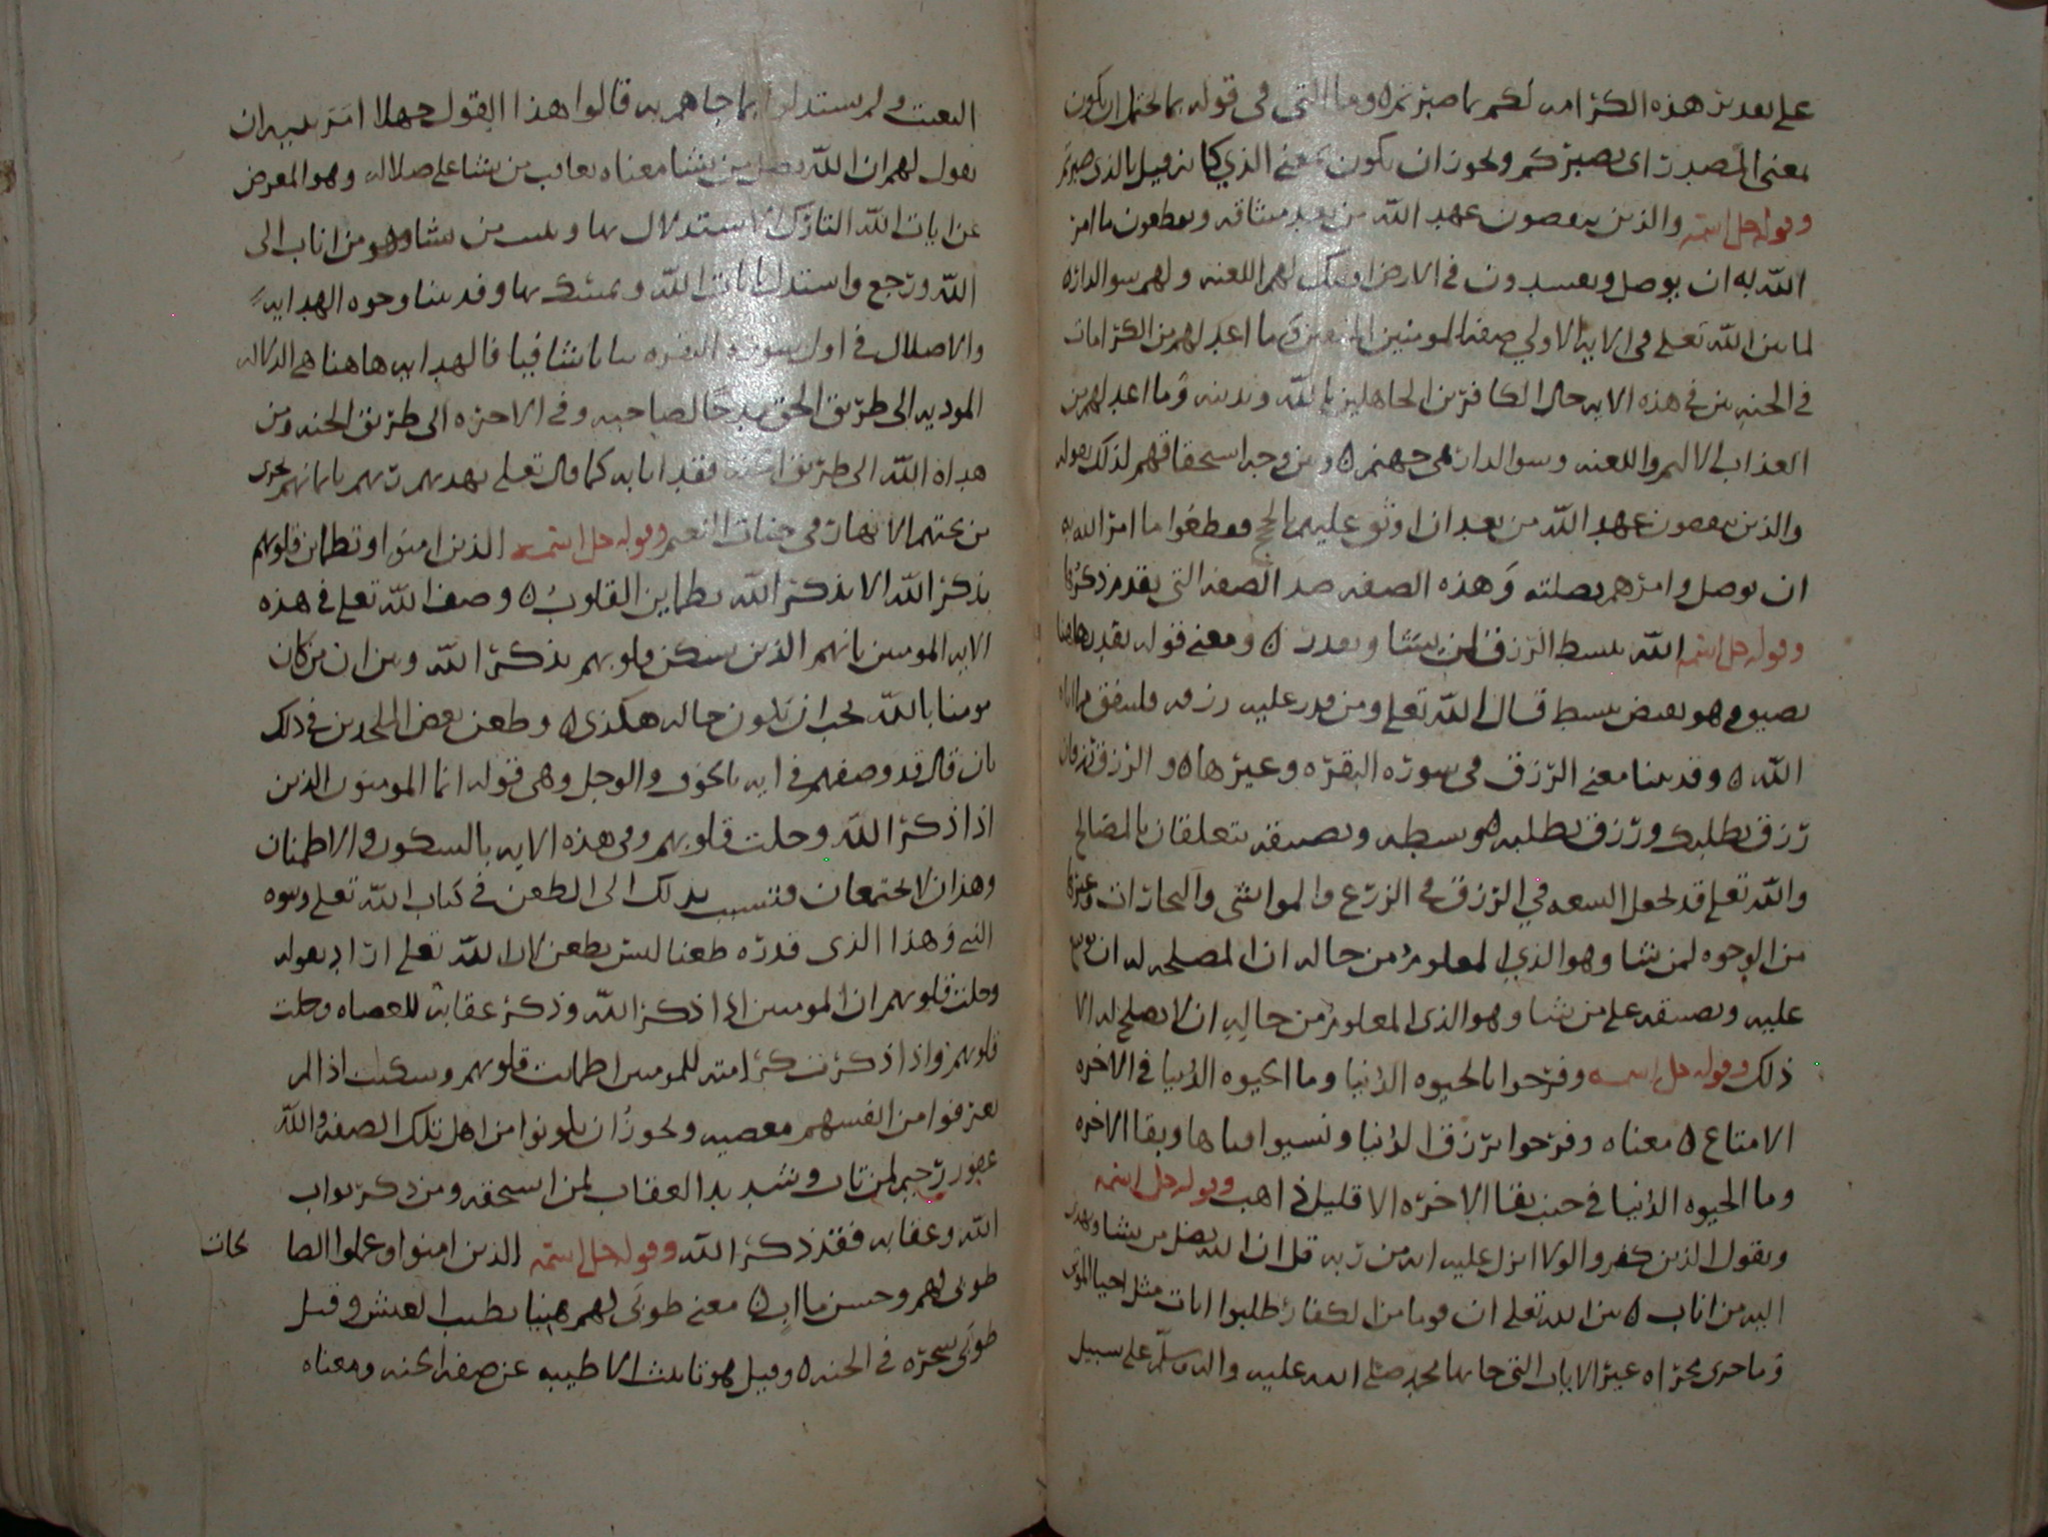 على تقدير هذه الكرامه لكم بما صبرتم ه وما التي في قوله بما يحتمل ان يكون
بمعنى المصدر اي بصبركم ويجوز ان يكون بمعنى الذي كانه قيل بالذي صبرتم
وقوله جل اسمه والذين ينقصون عهد الله من بعد ميثاقه ويقطعون ما امر
الله به ان يوصل ويفسدون في الارض اوليك لهم اللعنه ولهم سو الداره
لما بين الله تعلى في الايه الاولى صفه المومنين المتقين و ما اعد لهم من الكرامات
في الجنه بين في هذه الايه حال الكافرين الجاهلين بالله وبدينه وما اعد لهم من
العذاب الاليم واللعنه وسو الدار هي جهنم ه وبين وجه استحقاقهم لذلك بقوله
والذين ينقصون عهد الله من بعد ان اوثق عليهم الحجج فقطعوا ما امر الله به
ان يوصل وامرهم بصلته وهذه الصفه ضد الصفه التي تقدم ذكرها
وقوله جل اسمه الله يبسط الرزق لمن يشا ويقدر ه ومعنى قوله يقدر هاهنا
يضيق وهو نقيض يبسط قال الله تعلى ومن قدر عليه رزقه فلينفق مما اتاه
الله ه وقد بينا معنى الرزق في سورة البقره وغيرها ه والرزق رزقان
رزق يطلبك ورزق تطلبه ه وبسطه وتضيقه يتعلقان بالمصالح
والله تعلى قد يجعل السعه في الرزق في الزرع والمواشي والتجارات وغيرها
من الوجوه لمن شا وهو الذي المعلوم من حاله ان المصلحه له ان يوسع
عليه ويضيقه على من شا وهو الذي المعلوم من حاله ان لا يصلح له الا
ذلك وقوله جل اسمه وفرحوا بالحيوه الدنيا وما الحيوه الدنيا في الاخره
الا متاع ه معناه وفرحوا برزق الدنيا ونسيوا فناها وبقا الاخره
وما الحيوه الدنيا في جنب بقا الاخره الا قليل ذاهب وقوله جل اسمه
ويقول الذين كفروا لولا انزل عليه ايه من ربه قل ان الله يضل من يشا ويهدي
اليه من اناب ه بين الله تعلى ان قوما من الكفار طلبوا ايات مثل احيا الموتى
وما جرى مجراه غير الايات التي جا بها محمد صلى الله عليه واله وسلم على سبيل
التعنت ولم يستدلوا بما جاهم به قالوا هذا القول جهلا امر نبيه ان
يقول لهم ان الله يضل من يشا معناه يعاقب من يشا على ضلاله وهو المعرض
عن ايات الله التارك للاستدلال بها ويثيب من يشا وهو من اناب الى
الله ورجع واستدل بايات الله وتمسك بها وقد بينا وجوه الهدايه
والاضلال في اول سورة البقره بيانا شافيا فالهدايه هاهنا هي الدلاله
الموديه الى طريق الحق مدحا لصاحبه وفي الاخره الى طريق الجنه ومن
هداه الله الى طريق الجنه فقد اثابه كما قال تعلى يهديهم ربهم بايمانهم تجري
من تحتهم الانهار في جنات النعيم وقوله جل اسمه الذين امنوا وتطمئن قلوبهم
بذكر الله الا بذكر الله تطماين القلوب ه وصف الله تعلى في هذه
الايه المومنين بانهم الذين تسكن قلوبهم بذكر الله وبين ان من كان
مومنا بالله يجب ان يكون حاله هكذى ه وطعن بعض الملحدين في ذلك
بان قال قد وصفهم في ايه بالخوف والوجل وهي قوله انما المومنون الذين
اذا ذكر الله وجلت قلوبهم وفي هذه الايه بالسكون والاطمنان
وهذان لا يجتمعان فتسبب بذلك الى الطعن في كتاب الله تعلى ونبوه
النبي وهذا الذي قدره طعنا ليس بطعن لان الله تعلى اراد بقوله
وجلت قلوبهم ان المومنين اذا ذكر الله وذكر عقابه للعصاه وجلت
قلوبهم واذا ذكرت كرامته للمومنين اطمانت قلوبهم وسكنت اذا لم
يعرفوا من انفسهم معصيه ويجوز ان يكونوا من اهل تلك الصفه والله
غفور رحيم لمن تاب وشديد العقاب لمن استحقه ومن ذكر ثواب
الله وعقابه فقد ذكر الله وقوله جل اسمه الذين امنوا وعملوا الصا
لحات
طوبى لهم وحسن ماب ه معنى طوبى لهم هنيا بطيب العيش وقيل
طوبى شجره في الجنه ه وقيل هو تانيث الاطيب عن صفه الجنه ومعناه